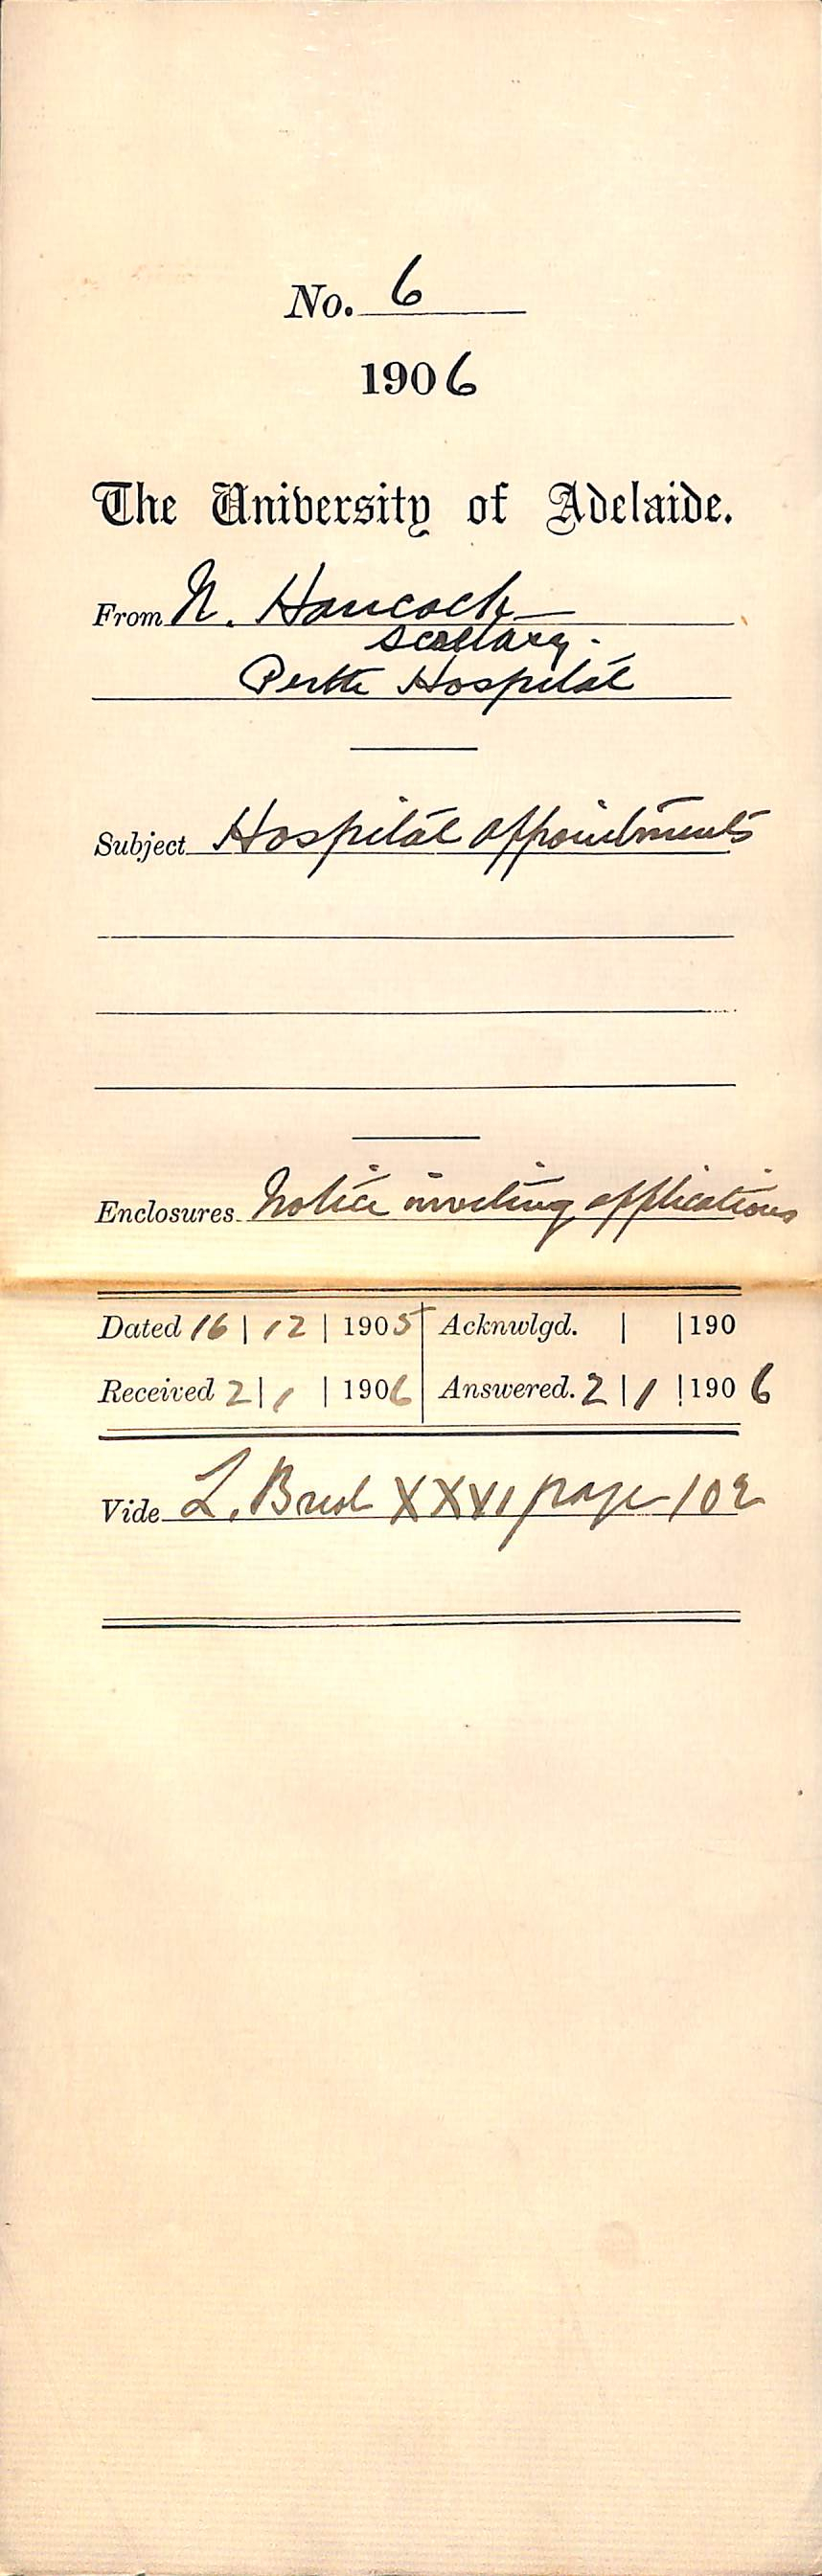 No. 6
1906
The University of Adelaide.
From N. Hancock
Secretary.
Perth Hospital
Subject Hospital appointments
Enclosures Notice inviting applications
Dated 16 | 12 | 1905 Acknwlgd. | | 190
Received 2 | 1 | 1906 Answered. 2 | 1 | 1906
Vide L. Book XXVI page 102